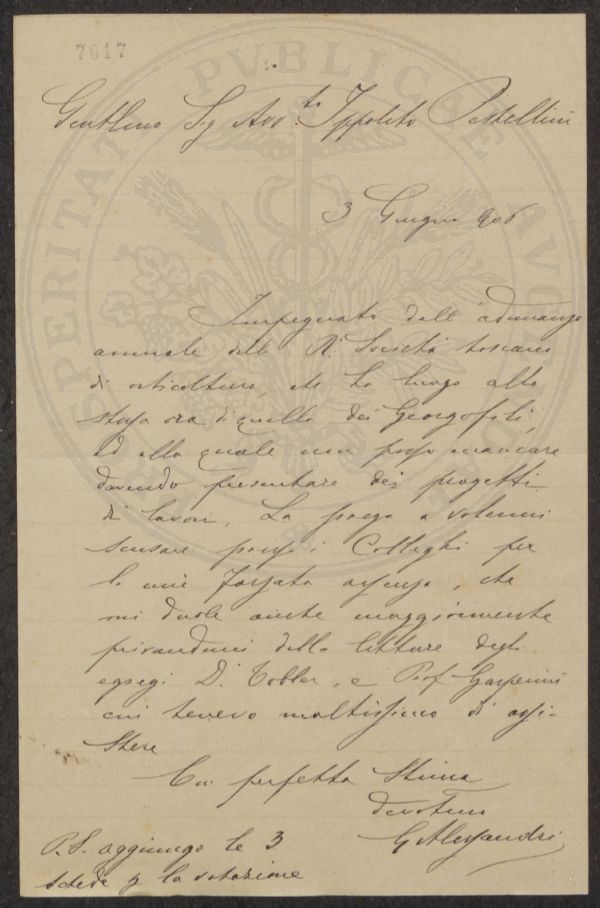 7017
PVBLICAE
PROSPERITATI
Gentilmo Sig Avv.to Ippolito Pestellini
3 Giugno 906
Impegnato dall'adunanza
annuale della R. Società toscana
di orticoltura, che ha luogo alla
stessa ora di quella dei Georgofili,
ed alla quale non posso mancare
dovendo presentare dei progetti
di lavori, La prego a volermi
scusare presso i Colleghi per
la mia forzata assenza, che
mi duole anche maggiormente
privandomi della letture degli
egregi D. Tobler, e Prof. Gasperini
cui tenevo moltissimo di assi-
stere
Con perfetta Stima
devotmo
G Alessandri
P.S. aggiungo le 3
schede p la votazione